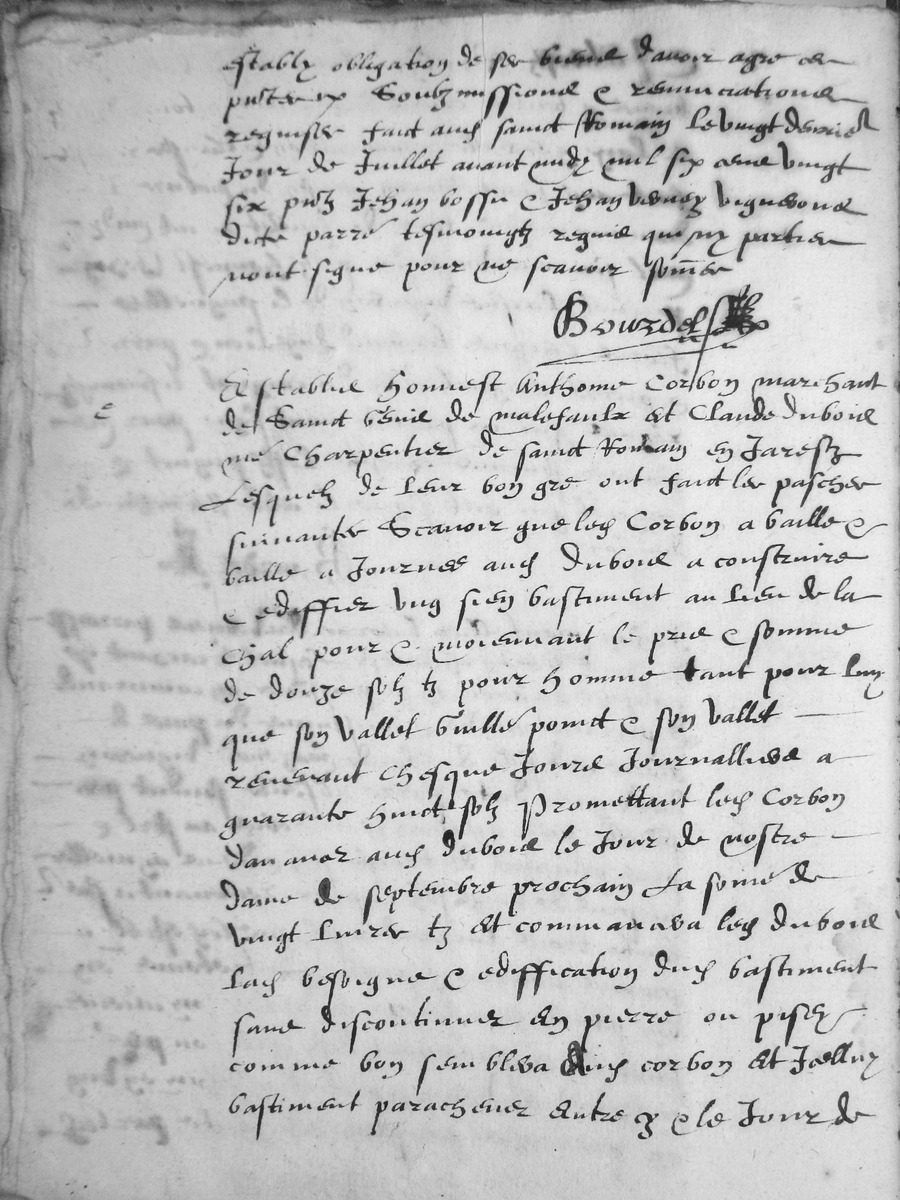 establÿ obligation de ses biens davoir agre ces
pntes ... Soubzmissions & renunciations
requises faict aud sainct Romain le vingt dernier
Jour de Juillet avant midy mil six cens vingt
six pntz Jehan bossu & Jehan verney vignerons
dicte parre tesmoingtz requis qui ny parties
nont signe pour ne scavoir sommes
Bourdel
Establis honnest Anthome Corbon marchant
de Sainct Genis de malefaulx Et Claude dubois
me Charpentier de sainct Romain en Jarestz
Lesquelz de leur bon gre ont faict les pasches
suivantes Scavoir que led Corbon a baille &
baille a Journee aud dubois a construire
& ediffier ung sien bastiment au Lieu de la
Chal pour & moiennant le pris & somme
de douze solz tz pour homme tant pour luy
que son vallet Guille poinct & son vallet
revenant chesque Jours Journalliers a
quarante huict solz Promettant led Corbon
davancer aud dubois le Jour de nostre
dame de septembre prochain La somme de
vingt Livres tz Et commancera led dubois
Lad besoigne & ediffication dud bastiment
sans discontinuer En pierre ou pisey
comme bon semblera Aud corbon Et Icelluy
bastiment parachever Entre cy & le Jour de